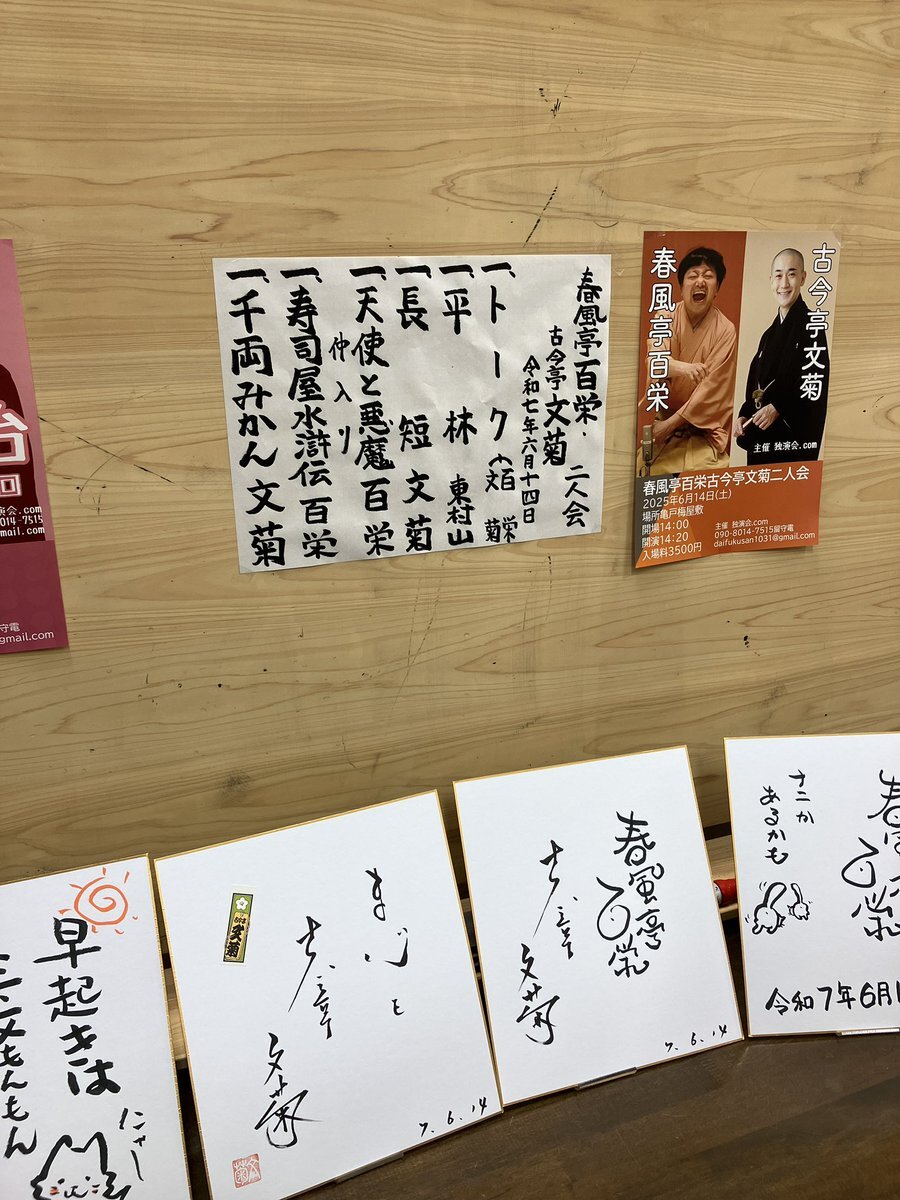 春風亭百栄・
古今亭文菊 二人会
令和七年六月十四日
一、トーク 百栄 文菊
一、平林 東村山
一、長短 文菊
一、天使と悪魔 百栄
仲入り
一、寿司屋水滸伝 百栄
一、千両みかん 文菊
春風亭百栄
古今亭文菊
主催 独演会.com
春風亭百栄古今亭文菊二人会
2025年6月14日(土)
場所亀戸梅屋敷
開場14:00
開演14:20
入場料3500円
主催 独演会.com
090-8014-7515留守電
daifukusan1031@gmail.com
回
演会.com
8014-7515
mail.com
守電
@gmail.com
早起きは
もんもん
にゃー
文菊
7.6.14
春風亭
百栄
文菊
7.6.14
ナニか
あるかも
春風亭
百栄
令和7年6月1